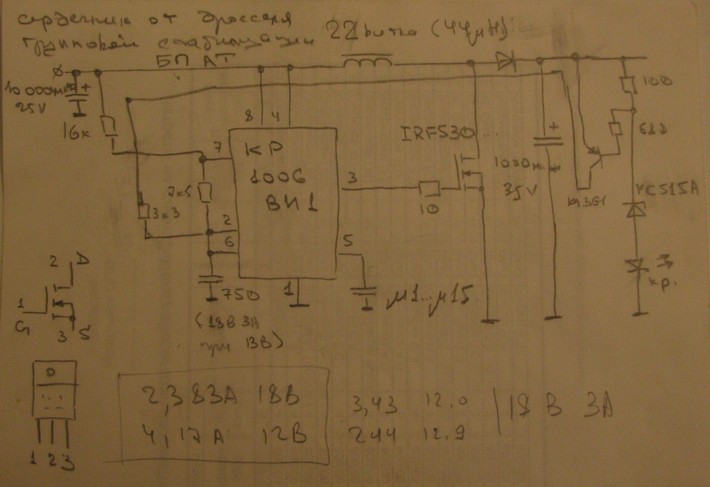 сердечник от дросселя 22 витка (44μH)
групповой стабилизации
БП АТ
10 000мк +
25V
16к
8 4
7
КР
1006
ВИ1
2
6
3
5
1
3к3
750
(18В 3А
при 13В)
μ1...μ15
10
IRF530
+
1000мк
35V
кт361
100
КС515А
кр.
2 D
1
G
3 S
1 2 3
2,383А 18В
4,17А 12В
3,43 12.0
244 12.9
18 В 3А